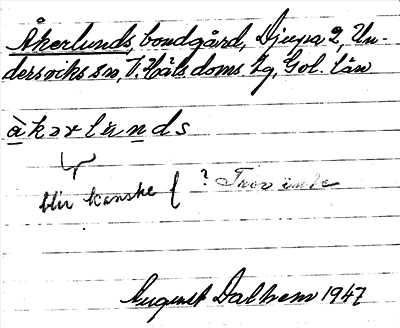 Åkerlunds, bondgård, Djupa 2, Un-
dersviks sn, V. Häls. doms. tg, Gvl. län
àkərlùnds
blir kanske ? Tror inte
August Dalhem 1947